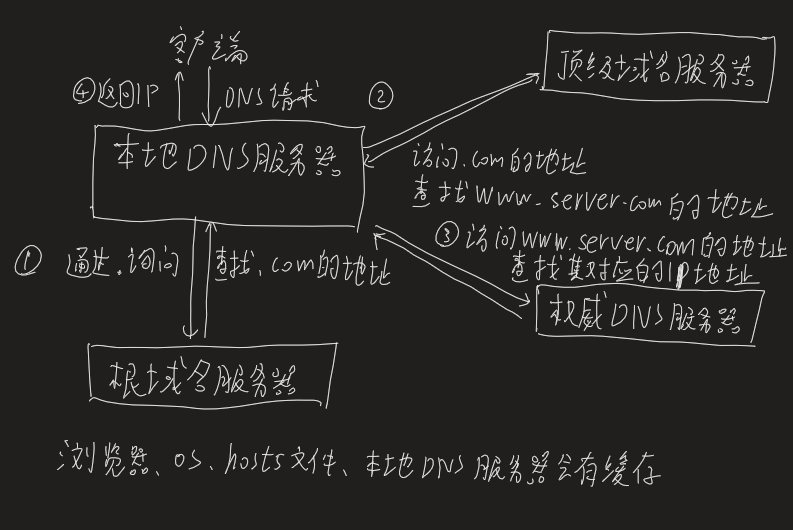 客户端
④返回IP
DNS请求
②
顶级域名服务器
本地DNS服务器
访问.com的地址
查找www.server.com的地址
③访问www.server.com的地址
查找其对应的IP地址
① 通过.访问
查找.com的地址
权威DNS服务器
根域名服务器
浏览器、os、hosts文件、本地DNS服务器会有缓存